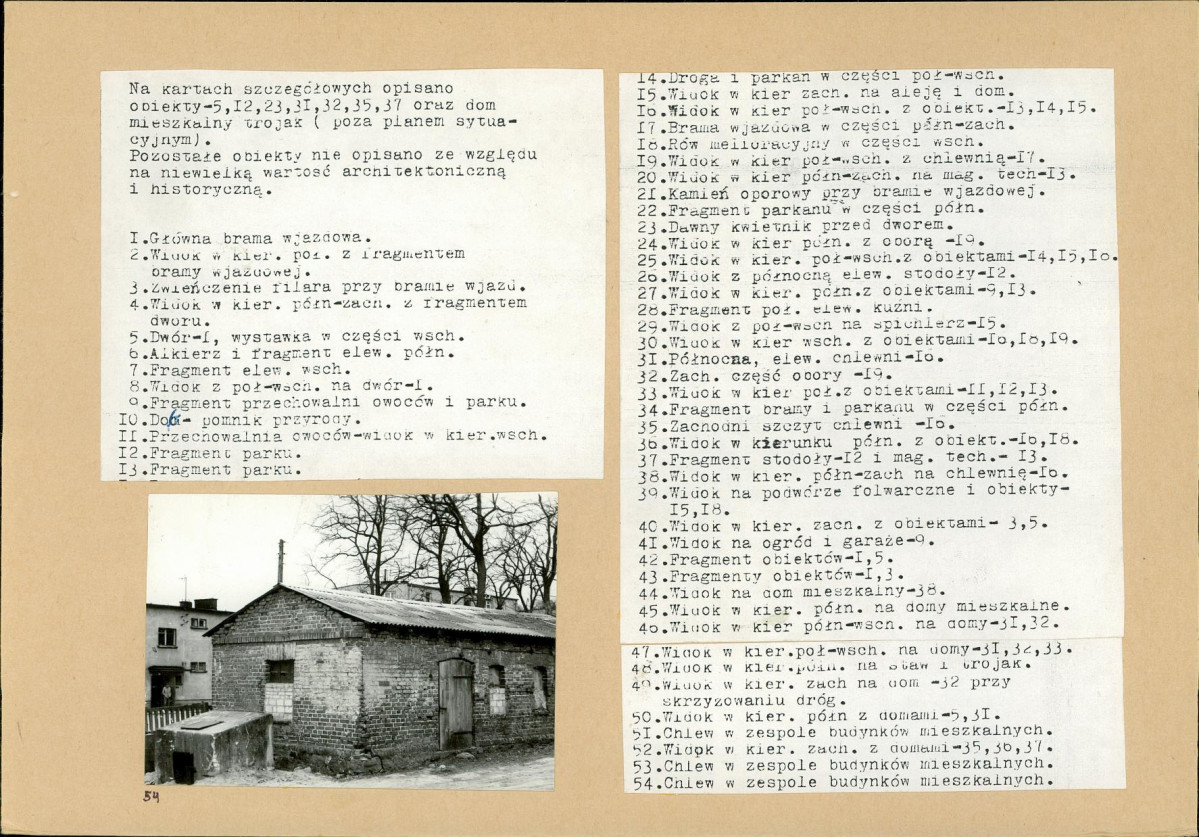 Na kartach szczegółowych opisano
obiekty-5,I2,23,3I,32,35,37 oraz dom
mieszkalny trojak ( poza planem sytua-
cyjnym).
Pozostałe obiekty nie opisano ze względu
na niewielką wartość architektoniczną
i historyczną.
I.Główna brama wjazdowa.
2.Widok w kier. poł. z fragmentem
bramy wjazdowej.
3.Zwieńczenie filara przy bramie wjazd.
4.Widok w kier. półn-zach. z fragmentem
dworu.
5.Dwór-I, wystawka w części wsch.
6.Alkierz i fragment elew. półn.
7.Fragment elew. wsch.
8.Widok z poł-wsch. na dwór-I.
9.Fragment przechowalni owoców i parku.
I0.Dąb- pomnik przyrody.
II.Przechowalnia owoców-widok w kier.wsch.
I2.Fragment parku.
I3.Fragment parku.
I4.Droga i parkan w części poł-wsch.
I5.Widok w kier zach. na aleję i dom.
I6.Widok w kier poł-wsch. z obiekt.-I3,I4,I5.
I7.Brama wjazdowa w części półn-zach.
I8.Rów melioracyjny w części wsch.
I9.Widok w kier poł-wsch. z chlewnią-I7.
20.Widok w kier półn-zach. na mag. tech-I3.
2I.Kamień oporowy przy bramie wjazdowej.
22.Fragment parkanu w części półn.
23.Dawny kwietnik przed dworem.
24.Widok w kier półn. z oborą -I9.
25.Widok w kier. poł-wsch.z obiektami-I4,I5,I6.
26.Widok z północną elew. stodoły-I2.
27.Widok w kier. półn.z obiektami-9,I3.
28.Fragment poł. elew. kuźni.
29.Widok z poł-wsch na spichlerz-I5.
30.Widok w kier wsch. z obiektami-I6,I8,I9.
3I.Północna, elew. chlewni-I6.
32.Zach. część obory -I9.
33.Widok w kier poł.z obiektami-II,I2,I3.
34.Fragment bramy i parkanu w części półn.
35.Zachodni szczyt chlewni -I6.
36.Widok w kierunku półn. z obiekt.-I6,I8.
37.Fragment stodoły-I2 i mag. tech.- I3.
38.Widok w kier. półn-zach na chlewnię-I6.
39.Widok na podwórze folwarczne i obiekty-
I5,I8.
40.Widok w kier. zach. z obiektami- 3,5.
4I.Widok na ogród i garaże-9.
42.Fragment obiektów-I,5.
43.Fragmenty obiektów-I,3.
44.Widok na dom mieszkalny-38.
45.Widok w kier. półn. na domy mieszkalne.
46.Widok w kier półn-wsch. na domy-3I,32.
47.Widok w kier.poł-wsch. na domy-3I,32,33.
48.Widok w kier.półn. na staw i trojak.
49.Widok w kier. zach na dom -32 przy
skrzyzowaniu dróg.
50.Widok w kier. półn z domami-5,3I.
5I.Chlew w zespole budynków mieszkalnych.
52.Widok w kier. zach. z domami-35,36,37.
53.Chlew w zespole budynków mieszkalnych.
54.Chlew w zespole budynków mieszkalnych.
54